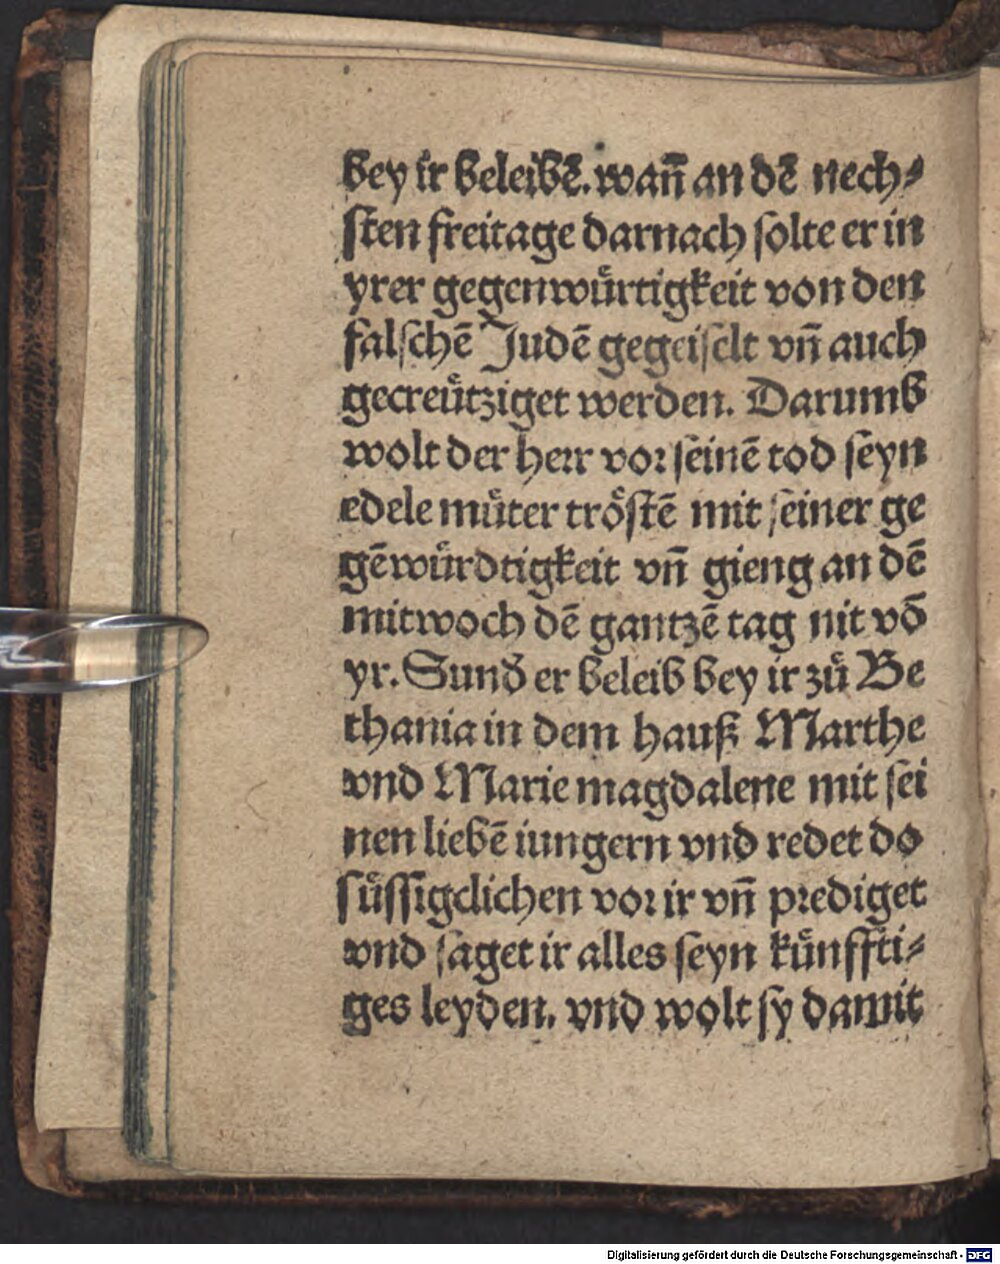 bey ir beleibē. wañ an dē nech⸗
sten freitage darnach solte er in
yrer gegenwuͤrtigkeit von den
falschē Judē gegeiselt vñ auch
gecreuͤtziget werden. Darumb
wolt der herr vor seinē tod seyn
edele muͤter troͤstē mit seiner ge
gēwuͤrdtigkeit vñ gieng an dē
mitwoch dē gantzē tag nit vō
yr. Sunđ er beleib bey ir zuͤ Be
thania in dem hauß Marthe
vnd Marie magdalene mit sei
nen liebē iungern vnd redet do
suͤssigclichen vor ir vñ prediget
vnd saget ir alles seyn kuͤnffti⸗
ges leyden. vnd wolt sy damit
Digitalisierung gefördert durch die Deutsche Forschungsgemeinschaft - DFG